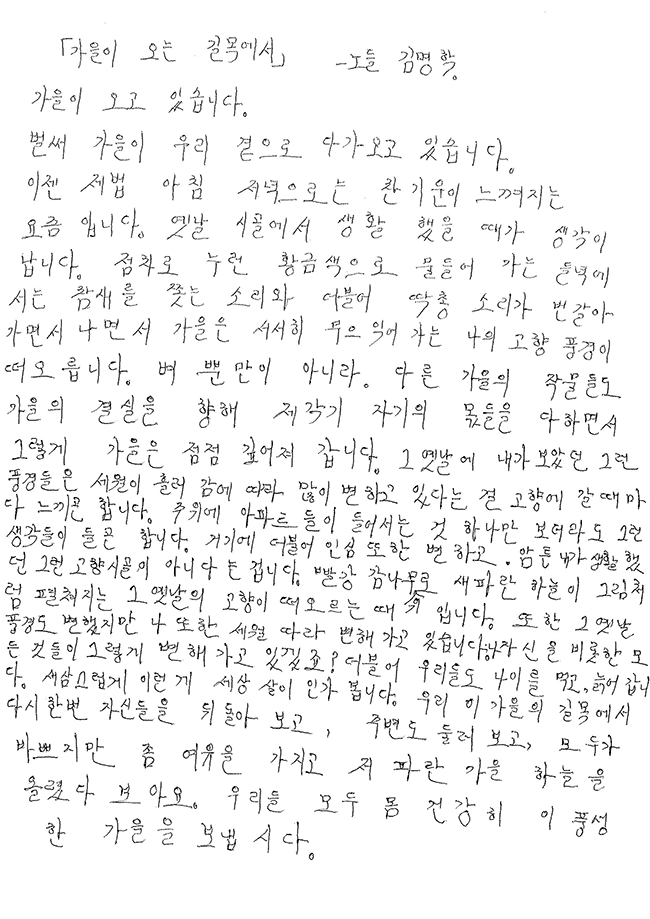 「가을이 오는 길목에서」 -노들 김명학.
가을이 오고 있습니다.
벌써 가을이 우리 곁으로 다가오고 있습니다.
이젠 제법 아침 저녁으로는 찬 기운이 느껴지는
요즘 입니다. 옛날 시골에서 생활 했을 때가 생각이
납니다. 점차로 누런 황금색으로 물들어 가는 들녘에
서는 참새를 쫓는 소리와 더불어 딱총 소리가 번갈아
가면서 나면서 가을은 서서히 무으익어 가는 나의 고향 풍경이
떠오릅니다. 벼 뿐만이 아니라. 다른 가을의 작물들도
가을의 결실을 향해 제각기 자기의 몫들을 다하면서
그렇게 가을은 점점 깊어져 갑니다. 그 옛날에 내가 보았던 그런
풍경들은 세월이 흘러 감에 따라 많이 변하고 있다는 걸 고향에 갈 때마
다 느끼곤 합니다. 주위에 아파트들이 들어서는 것 하나만 보더라도 그런
생각들이 들곤 합니다. 거기에 더불어 인심 또한 변하고. 암튼 내가 생활 했
던 그런 고향시골이 아니다 는 겁니다. 빨강 감나무로 새파란 하늘이 그림처
럼 펼쳐지는 그 옛날의 고향이 떠오르는 때 입니다. 또한 그 옛날
풍경도 변했지만 나 또한 세월 따라 변해 가고 있습니다. 나 자신을 비롯한 모
든 것들이 그렇게 변해 가고 있겠죠? 더불어 우리들도 나이를 먹고, 늙어 갑니
다. 세삼그럽게 이런 게 세상 살이 인가 봅니다. 우리 이 가을의 길목에서
다시 한번 자신들을 뒤돌아 보고, 주변도 둘러 보고, 모두가
바쁘지만 좀 여유을 가지고 저 파란 가을 하늘을
올렸다 보아요. 우리들 모두 몸 건강히 이 풍성
한 가을을 보냅시다.